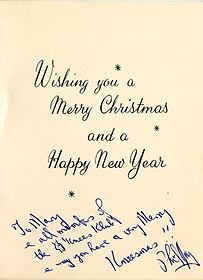 Wishing you a
Merry Christmas
and a
Happy New Year
To Mary
& all members of
the
& may you have a very Merry